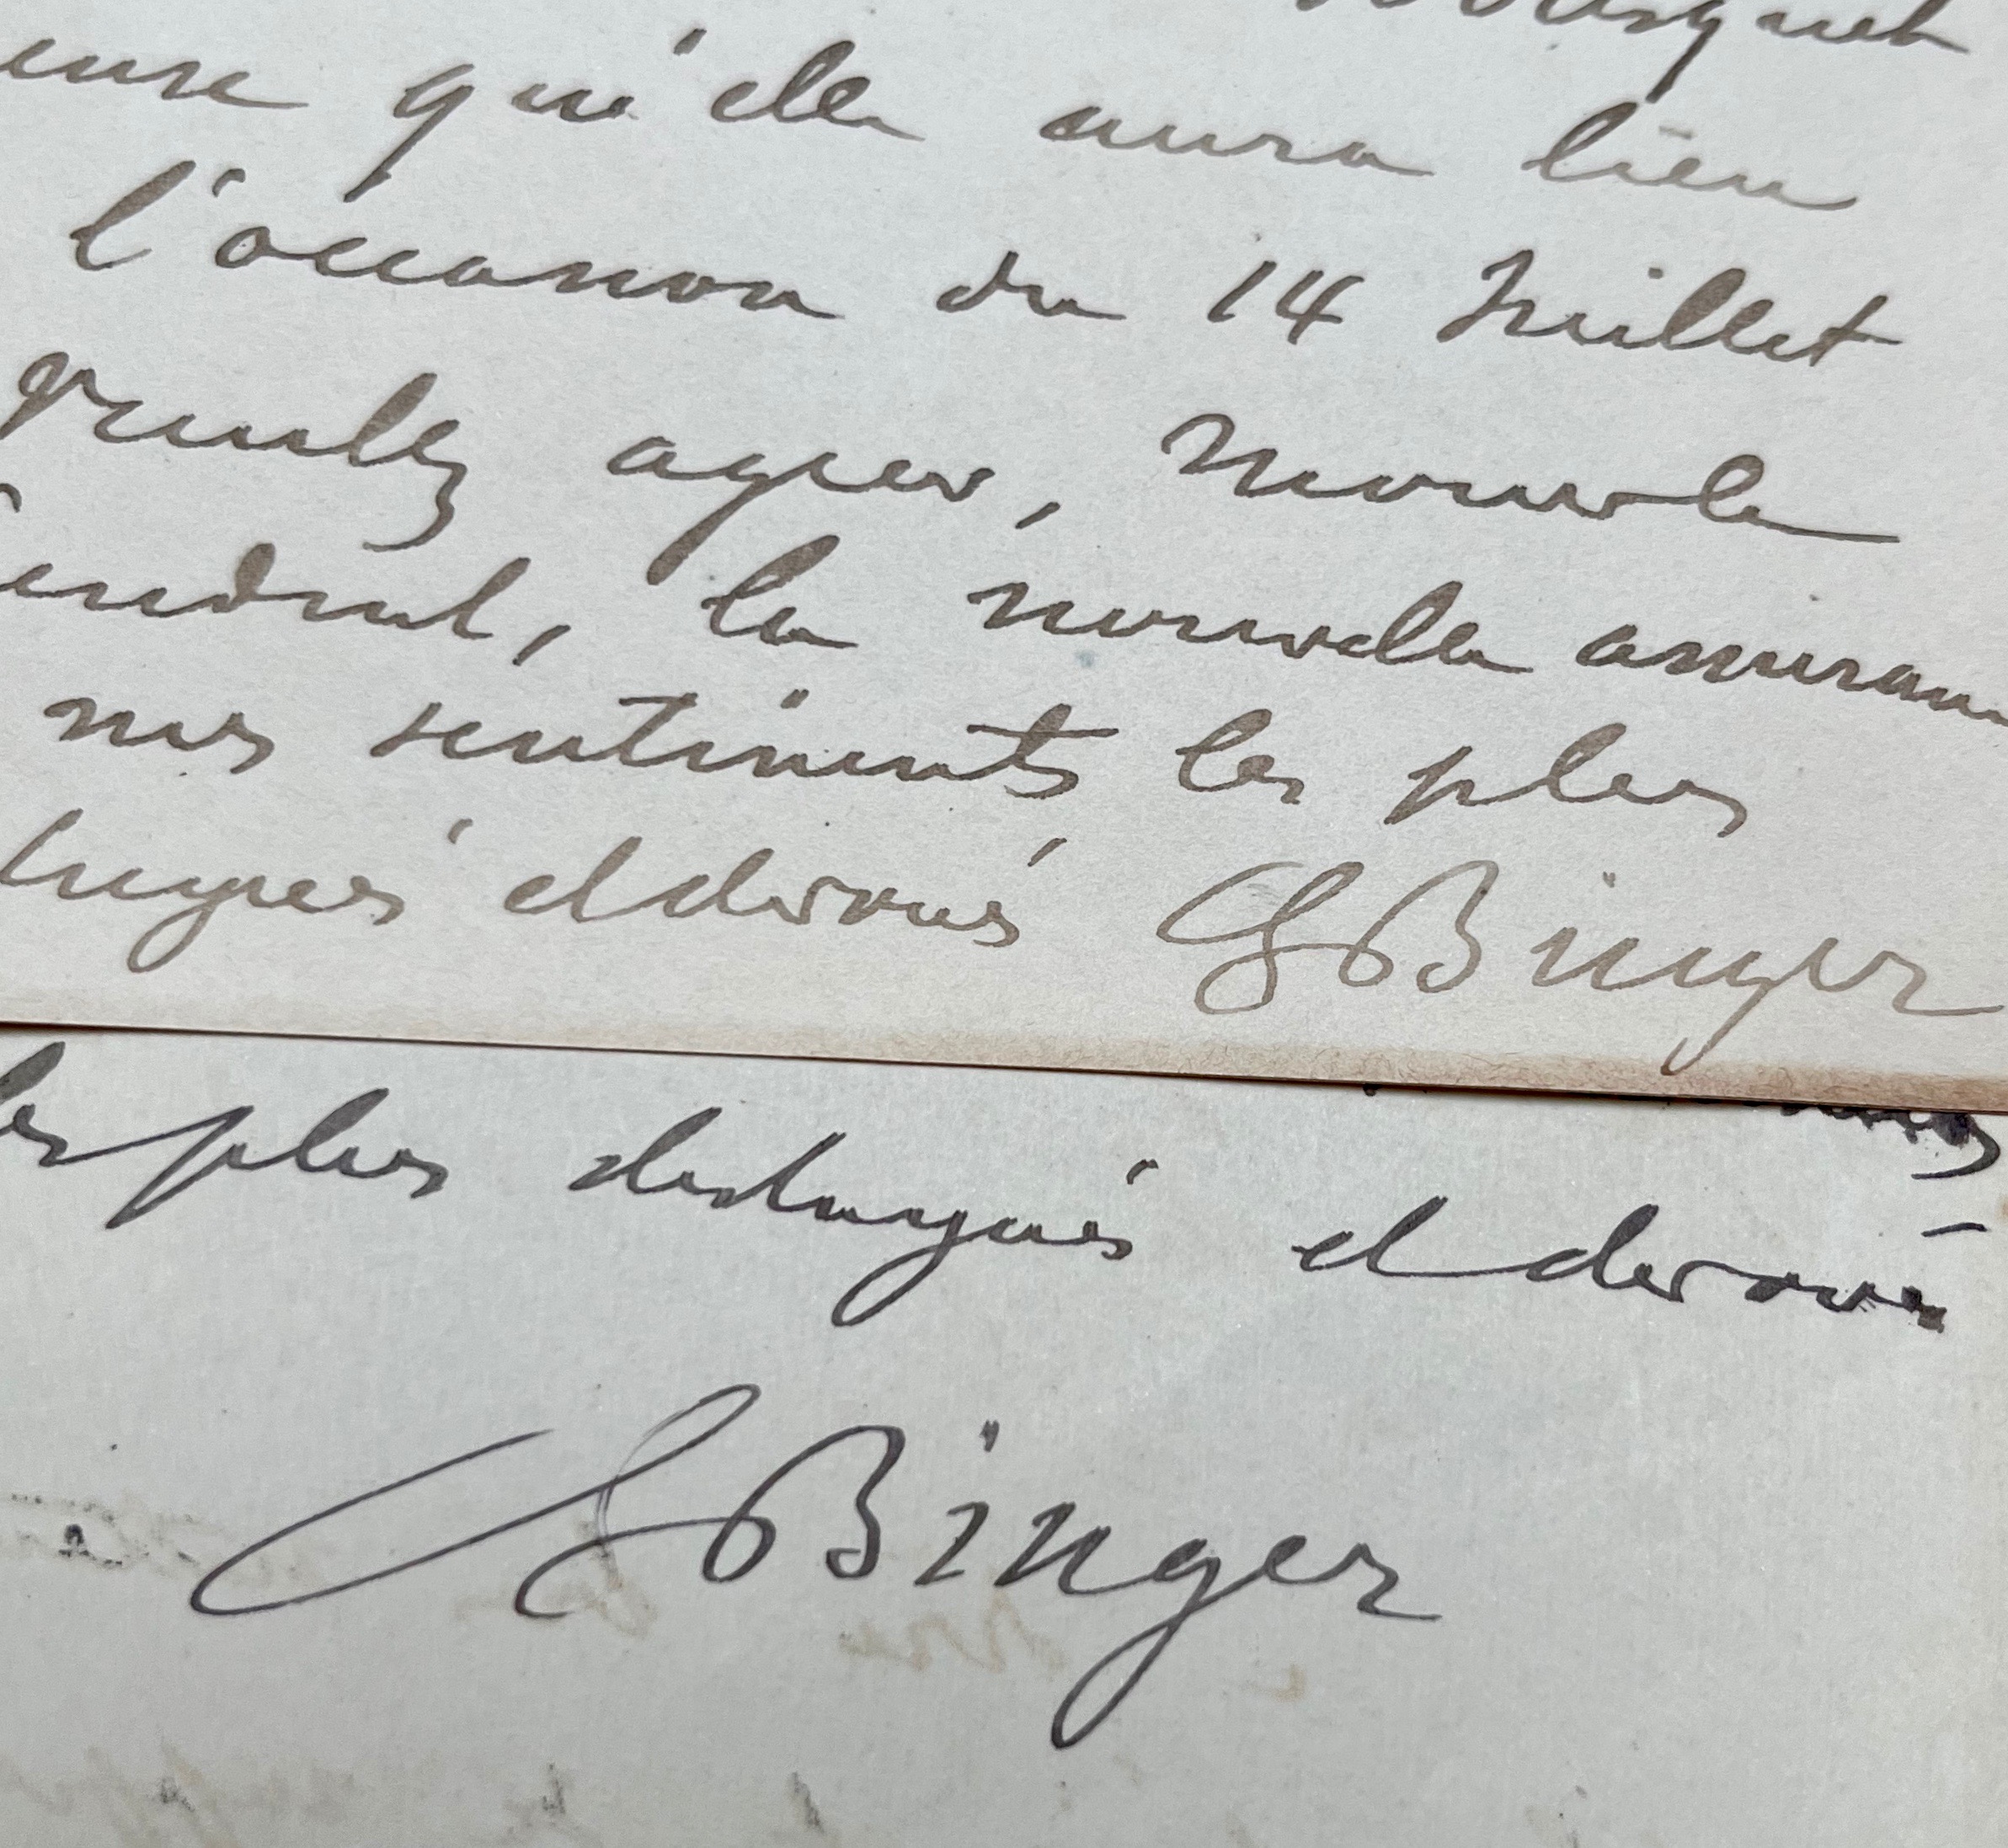 qu'elle aura lieu
l'occasion du 14 Juillet
veuillez agréer, Monsieur le
la nouvelle assurance
mes sentiments les plus
distingués et dévoués GBinger
les plus distingués et dévoués
GBinger